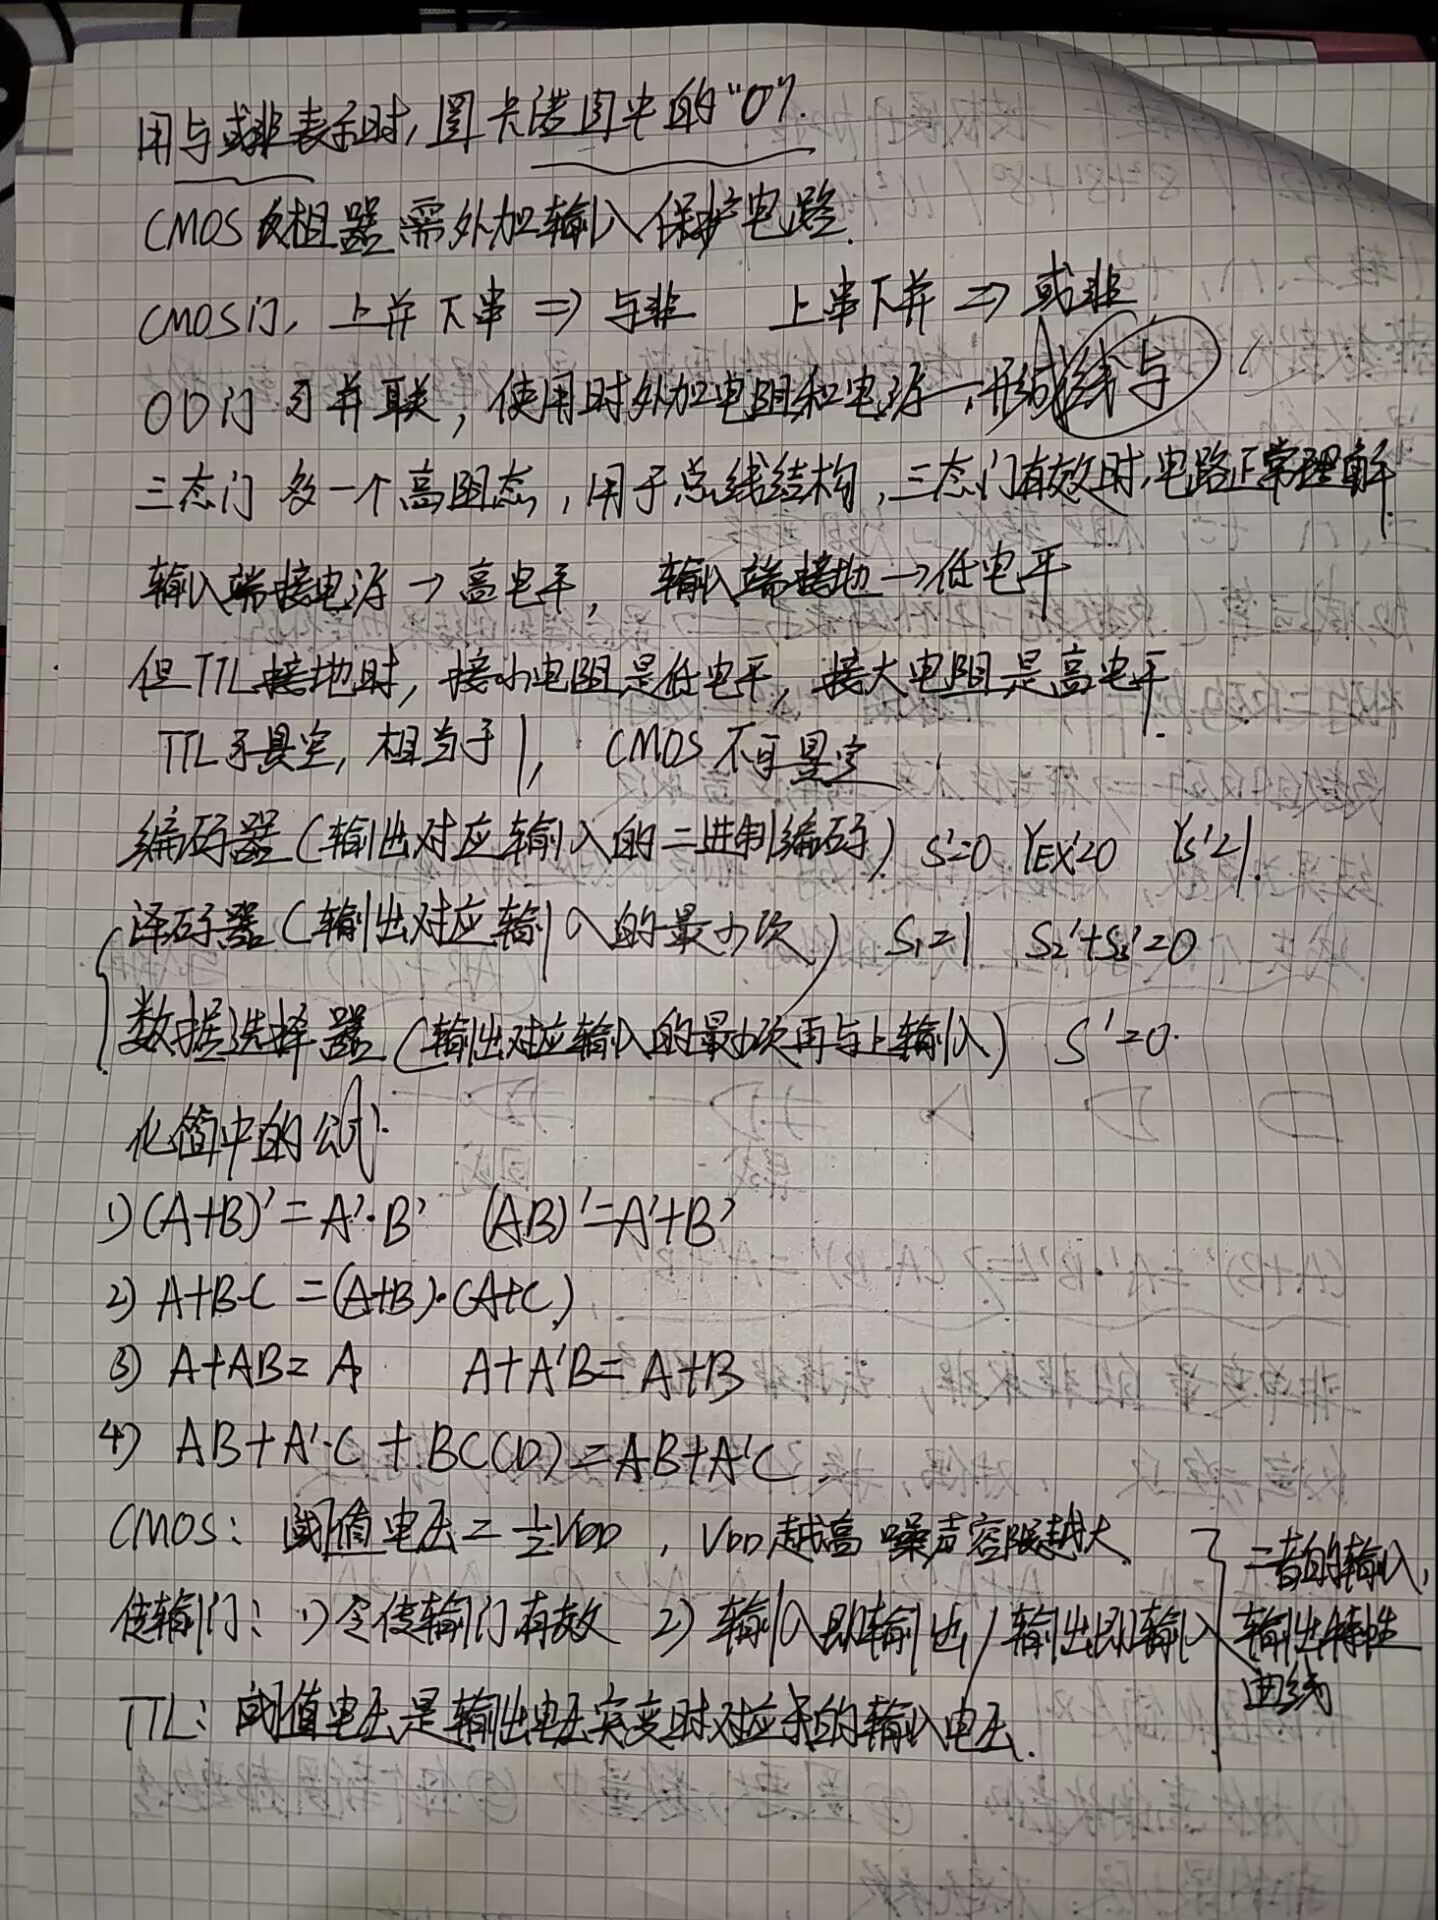 用与或非表示时，圈卡诺图中的"0".
CMOS反相器需外加输入保护电路.
CMOS门，上并下串 => 与非 上串下并 => 或非
OD门可并联，使用时外加电阻和电源→形成线与
三态门多一个高阻态，用于总线结构，三态门有效时，电路正常理解
输入端接电源→高电平， 输入端接地→低电平
但TTL接地时，接小电阻是低电平，接大电阻是高电平.
TTL可悬空，相当于1， CMOS不可悬空
编码器(输出对应输入的二进制编码) S'=0 YEX'=0 Ys'=1.
译码器(输出对应输入的最小项) S₁=1 S₂'+S₃'=0
数据选择器(输出对应输入的最小项再与上输入) S'=0.
化简中的公式:
1) (A+B)'=A'·B' (AB)'=A'+B'
2) A+B·C=(A+B)·(A+C)
3) A+AB=A A+A'B=A+B
4) AB+A'·C+BC(D)=AB+A'C
CMOS: 阈值电压=½VDD，VDD越高噪声容限越大.
传输门: 1)令传输门有效 2)输入即输出/输出即输入
TTL: 阈值电压是输出电压突变时对应的输入电压.
二者的输入，
输出特性
曲线